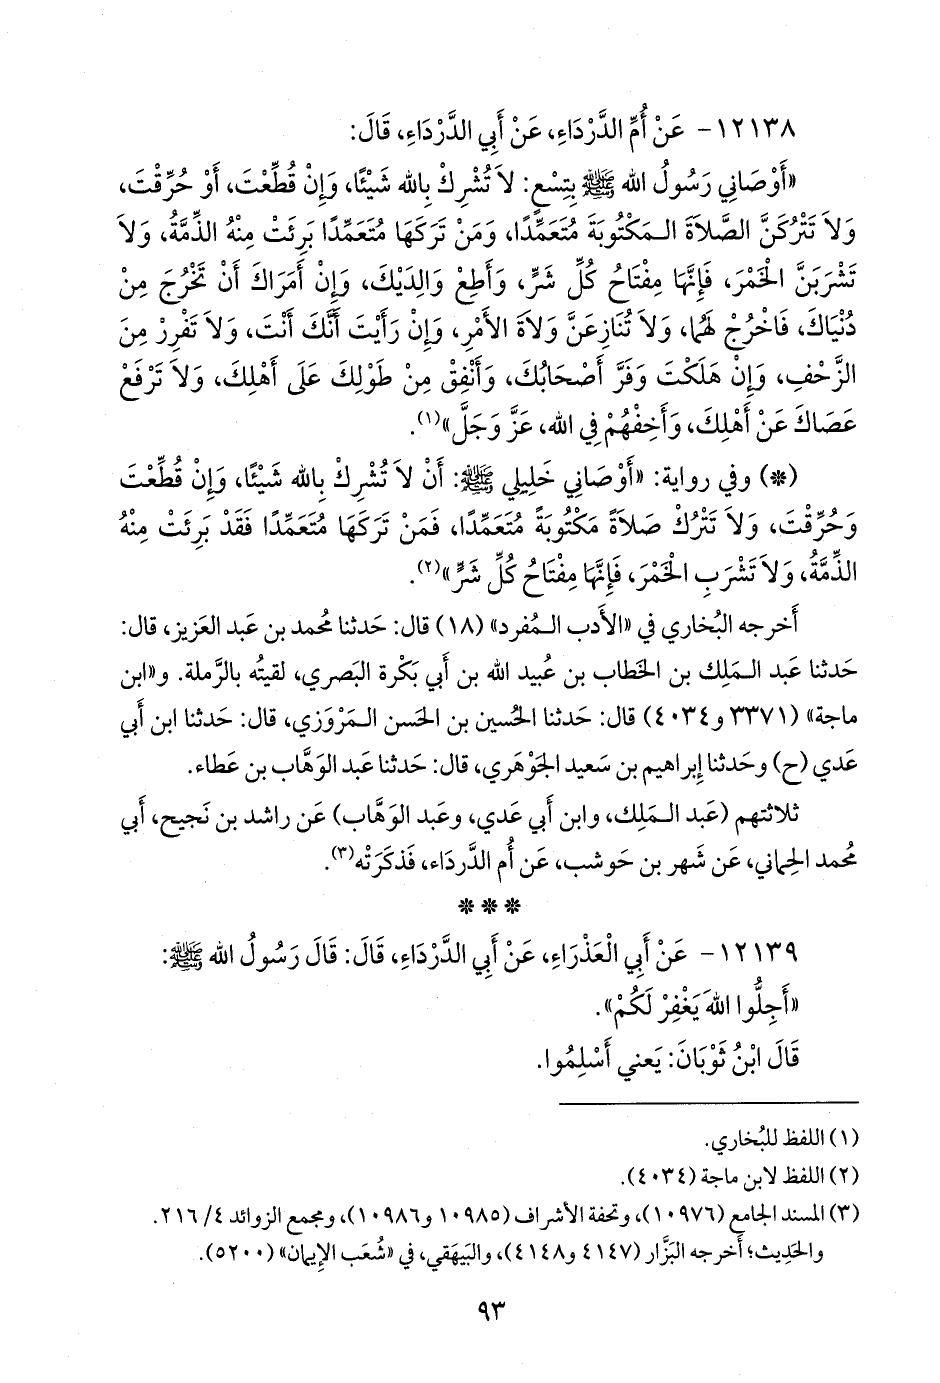 ١٢١٣٨- عَنْ أُمِّ الدَّرْدَاءِ، عَنْ أَبِي الدَّرْدَاءِ، قَالَ:
«أَوْصَانِي رَسُولُ الله ﷺ بِتِسْعٍ: لاَ تُشْرِكْ بِالله شَيْئًا، وَإِنْ قُطِّعْتَ، أَوْ حُرِّقْتَ،
وَلاَ تَتْرُكَنَّ الصَّلاَةَ الـمَكْتُوبَةَ مُتَعَمِّدًا، وَمَنْ تَرَكَهَا مُتَعَمِّدًا بَرِئَتْ مِنْهُ الذِّمَّةُ، وَلاَ
تَشْرَبَنَّ الخَمْرَ، فَإِنَّهَا مِفْتَاحُ كُلِّ شَرٍّ، وَأَطِعْ وَالِدَيْكَ، وَإِنْ أَمَرَاكَ أَنْ تَخْرُجَ مِنْ
دُنْيَاكَ، فَاخْرُجْ لَهُمَا، وَلاَ تُنَازِعَنَّ وَلاَةَ الأَمْرِ، وَإِنْ رَأَيْتَ أَنَّكَ أَنْتَ، وَلاَ تَفْرِرْ مِنَ
الزَّحْفِ، وَإِنْ هَلَكْتَ وَفَرَّ أَصْحَابُكَ، وَأَنْفِقْ مِنْ طَوْلِكَ عَلَى أَهْلِكَ، وَلاَ تَرْفَعْ
عَصَاكَ عَنْ أَهْلِكَ، وَأَخِفْهُمْ فِي الله، عَزَّ وَجَلَّ»(١).
(*) وفي رواية: «أَوْصَانِي خَلِيلِي ﷺ: أَنْ لاَ تُشْرِكْ بِالله شَيْئًا، وَإِنْ قُطِّعْتَ
وَحُرِّقْتَ، وَلاَ تَتْرُكْ صَلاَةً مَكْتُوبَةً مُتَعَمِّدًا، فَمَنْ تَرَكَهَا مُتَعَمِّدًا فَقَدْ بَرِئَتْ مِنْهُ
الذِّمَّةُ، وَلاَ تَشْرَبِ الخَمْرَ، فَإِنَّهَا مِفْتَاحُ كُلِّ شَرٍّ»(٢).
أَخرجه البُخاري في «الأَدب الـمُفرد» (١٨) قال: حَدثنا محُمد بن عَبد العَزيز، قال:
حَدثنا عَبد الـمَلِك بن الخَطاب بن عُبيد الله بن أَبي بَكْرة البَصري، لقيتُه بالرَّملة. و«ابن
ماجة» (٣٣٧١ و٤٠٣٤) قال: حَدثنا الحُسين بن الحَسن الـمَرْوَزي، قال: حَدثنا ابن أَبي
عَدي (ح) وحَدثنا إِبراهيم بن سَعيد الجَوْهَري، قال: حَدثنا عَبد الوَهَّاب بن عَطاء.
ثلاثتهم (عَبد الـمَلِك، وابن أَبي عَدي، وعَبد الوَهَّاب) عَن راشد بن نَجيح، أَبي
مُحمد الحِماني، عَن شَهر بن حَوشب، عَن أُم الدَّرداء، فَذكَرَتْه(٣).
* * *
١٢١٣٩- عَنْ أَبِي الْعَذْرَاءِ، عَنْ أَبِي الدَّرْدَاءِ، قَالَ: قَالَ رَسُولُ الله ﷺ:
«أَجِلُّوا اللهَ يَغْفِرْ لَكُمْ».
قَالَ ابْنُ ثَوْبَانَ: يَعني أَسْلِمُوا.
(١) اللفظ للبُخاري.
(٢) اللفظ لابن ماجة (٤٠٣٤).
(٣) المسند الجامع (١٠٩٧٦)، وتحفة الأشراف (١٠٩٨٥ و١٠٩٨٦)، ومجمع الزوائد ٤/ ٢١٦.
والحَدِيث؛ أخرجه البَزَّار (٤١٤٧ و٤١٤٨)، والبَيهَقي، في «شُعَب الإيمان» (٥٢٠٠).
٩٣